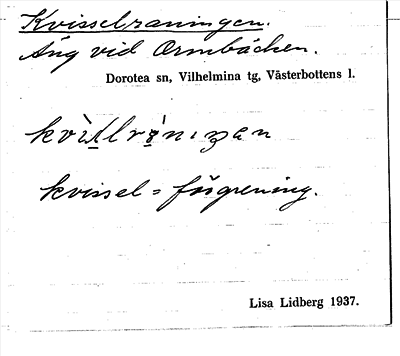 Kvisselraningen.
Äng vid Ormbäcken.
Dorotea sn, Vilhelmina tg, Västerbottens l.
kvissel = förgrening.
Lisa Lidberg 1937.